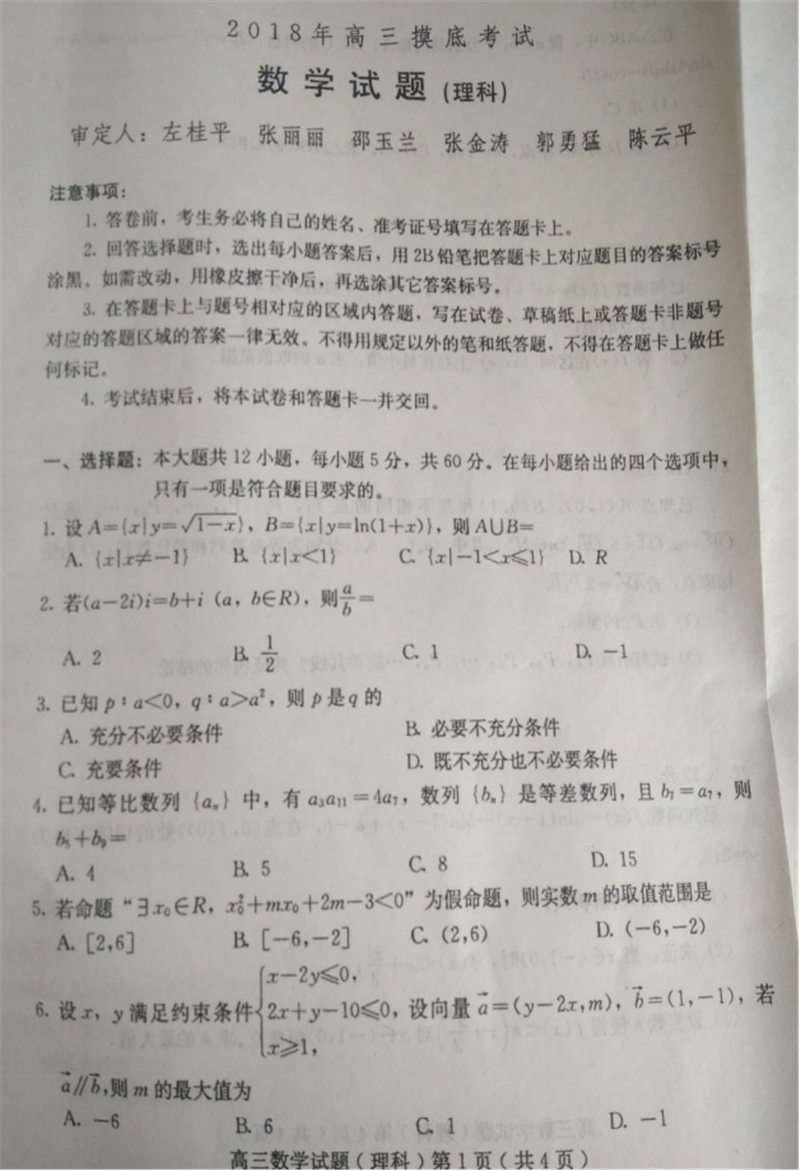 2018年高三摸底考试
数学试题(理科)
审定人：左桂平 张丽丽 邵玉兰 张金涛 郭勇猛 陈云平
注意事项：
1. 答卷前，考生务必将自己的姓名、准考证号填写在答题卡上。
2. 回答选择题时，选出每小题答案后，用2B铅笔把答题卡上对应题目的答案标号
涂黑。如需改动，用橡皮擦干净后，再选涂其它答案标号。
3. 在答题卡上与题号相对应的区域内答题，写在试卷、草稿纸上或答题卡非题号
对应的答题区域的答案一律无效。不得用规定以外的笔和纸答题，不得在答题卡上做任
何标记。
4. 考试结束后，将本试卷和答题卡一并交回。
一、选择题：本大题共12小题，每小题5分，共60分。在每小题给出的四个选项中，
只有一项是符合题目要求的。
1. 设A={x|y=√(1-x)}，B={x|y=ln(1+x)}，则A∪B=
A. {x|x≠-1} B. {x|x<1} C. {x|-1<x≤1} D. R
2. 若(a-2i)i=b+i（a，b∈R），则a/b=
A. 2 B. 1/2 C. 1 D. -1
3. 已知p：a<0，q：a>a²，则p是q的
A. 充分不必要条件 B. 必要不充分条件
C. 充要条件 D. 既不充分也不必要条件
4. 已知等比数列{aₙ}中，有a₃a₁₁=4a₇，数列{bₙ}是等差数列，且b₇=a₇，则
b₅+b₉=
A. 4 B. 5 C. 8 D. 15
5. 若命题“∃x₀∈R，x₀²+mx₀+2m-3<0”为假命题，则实数m的取值范围是
A. [2,6] B. [-6,-2] C. (2,6) D. (-6,-2)
6. 设x，y满足约束条件{x-2y≤0，2x+y-10≤0，x≥1，设向量a⃗=(y-2x,m)，b⃗=(1,-1)，若
a⃗∥b⃗,则m的最大值为
A. -6 B. 6 C. 1 D. -1
高三数学试题(理科)第1页(共4页)